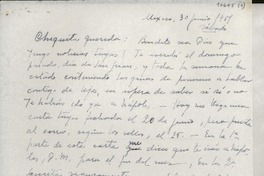 México, 30 junio, 1951
Sábado
Chiquita querida: Bendito sea Dios que
tengo noticias tuyas! Te escribí el domingo
pasado, día de San Juan, y toda la semana he
estado conteniendo las ganas de ponerme a hablar
contigo de lejos, en espera de saber si sí o no
te habías ido ya a Nápoles. — Hoy me llega una
carta tuya fechada el 20 de junio, puesta
al correo, según los sellos, el 25. — En la 1ª
parte de esta carta me dices que te irás a Nápo-
les, D. M. para el fin del mes, En la 2ª